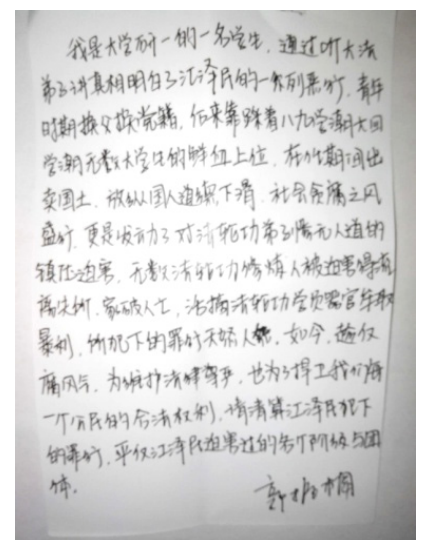 我是大学研一的一名学生，通过听大法
弟子讲真相明白了江泽民的一系列恶行，青年
时期换父换党籍，后来靠踩着八九学潮大四
学潮无数大学生的鲜血上位，在位期间出
卖国土，放纵国人道德下滑，社会贪腐之风
盛行，更是发动了对法轮功弟子惨无人道的
镇压迫害，无数法轮功修炼人被迫害得流
离失所，家破人亡，活摘法轮功学员器官牟取
暴利，所犯下的罪行天怒人怨，如今，趁
腐风气，为维护法律尊严，也为了捍卫我们每
一个公民的合法权利，请清算江泽民犯下
的罪行，平反江泽民迫害过的各个阶级与团
体。